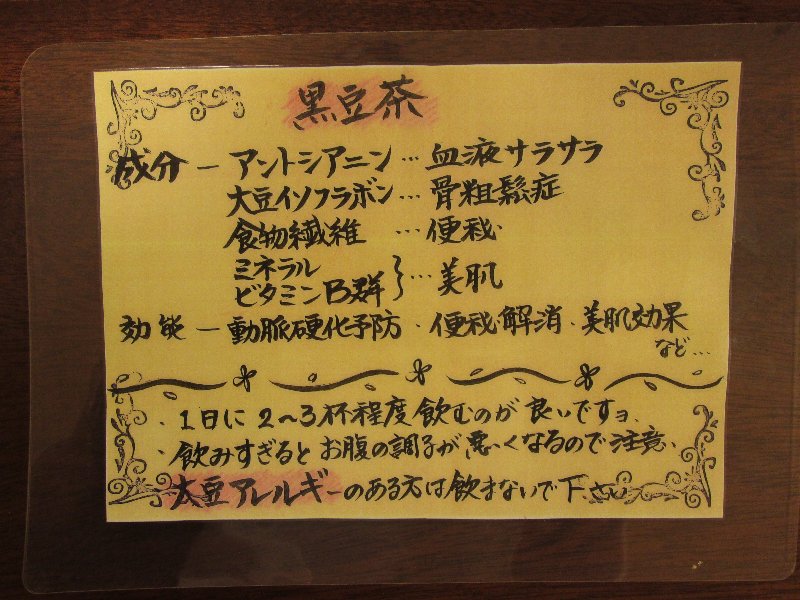 黒豆茶
成分 ー アントシアニン … 血液サラサラ
大豆イソフラボン … 骨粗鬆症
食物繊維 … 便秘
ミネラル
ビタミンB群 } … 美肌
効能 ー 動脈硬化予防 ・ 便秘解消 ・ 美肌効果
など…
・1日に2〜3杯程度飲むのが良いですョ、
・飲みすぎるとお腹の調子が悪くなるので注意、
大豆アレルギーのある方は飲まないで下さい